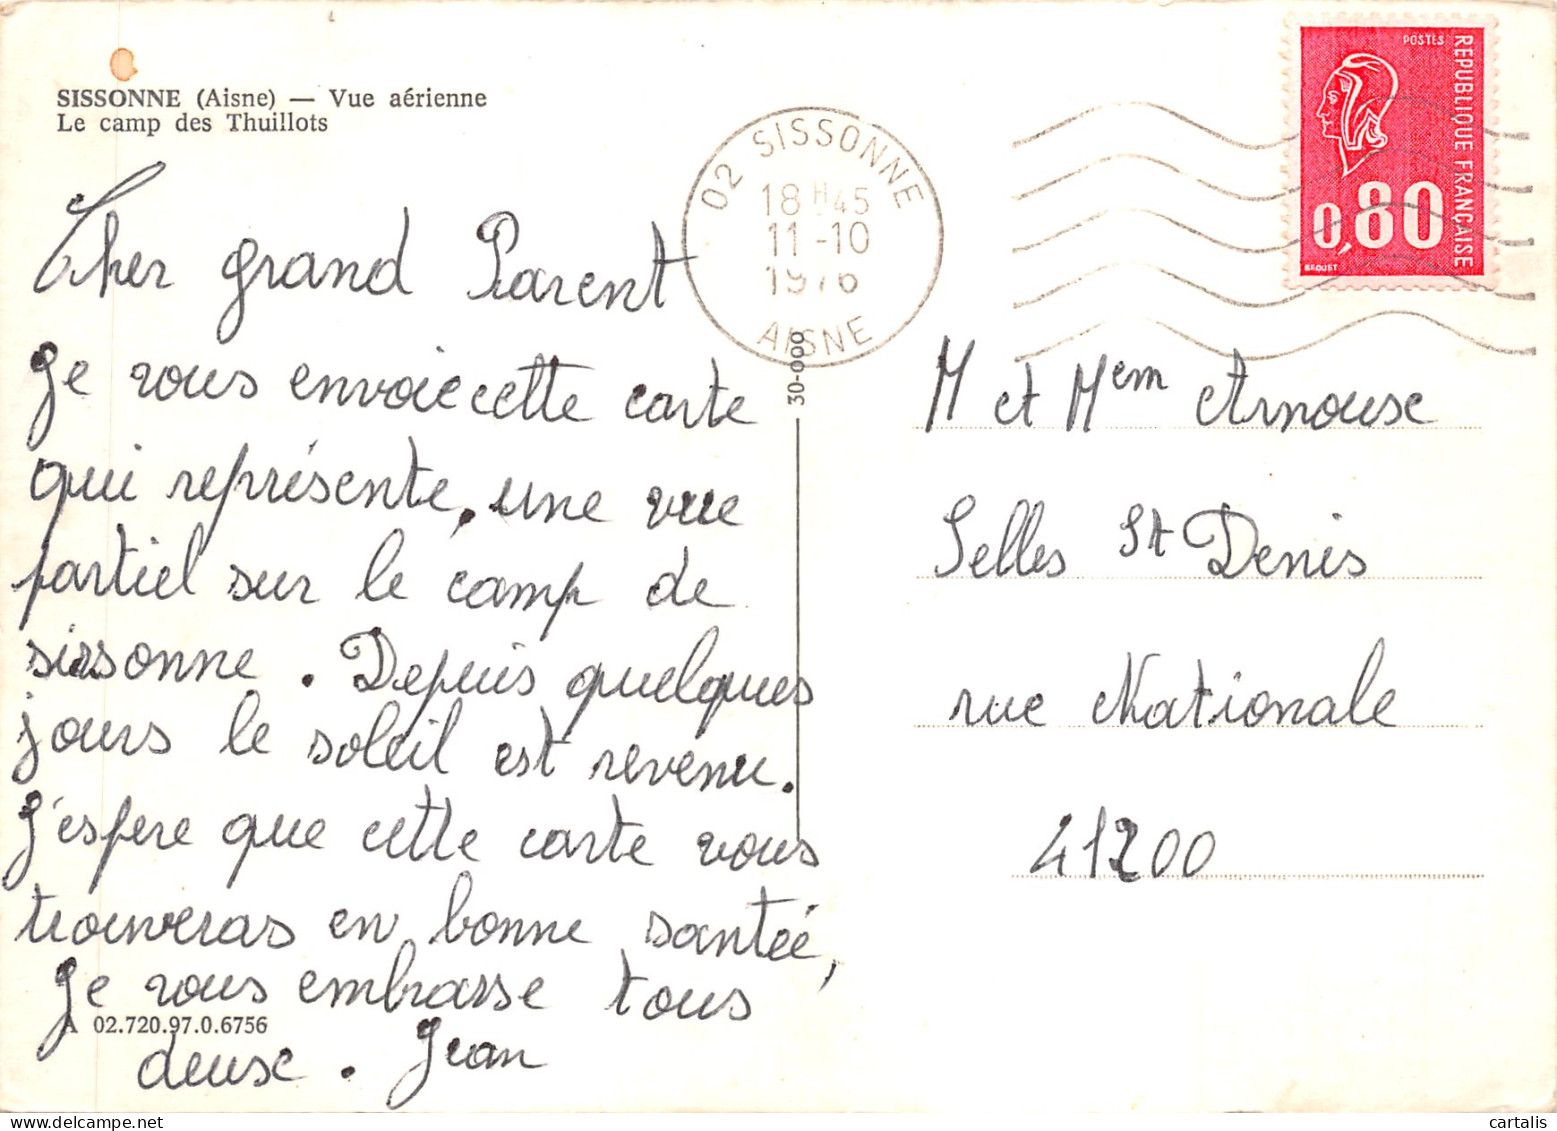 SISSONNE (Aisne) — Vue aérienne
Le camp des Thuillots
Cher grand Parent
Je vous envoie cette carte
qui représente, une vue
partiel sur le camp de
sissonne. Depuis quelques
jours le soleil est revenu.
J'espere que cette carte vous
trouveras en bonne santée,
Je vous embrasse tous
A 02.720.97.0.6756
deux. Jean
02 SISSONNE
18H45
11-10
1976
AISNE
30-000
POSTES
REPUBLIQUE FRANÇAISE
0,80
BEQUET
M et Mem Arnoux
Selles St Denis
rue Nationale
41200
cartalis